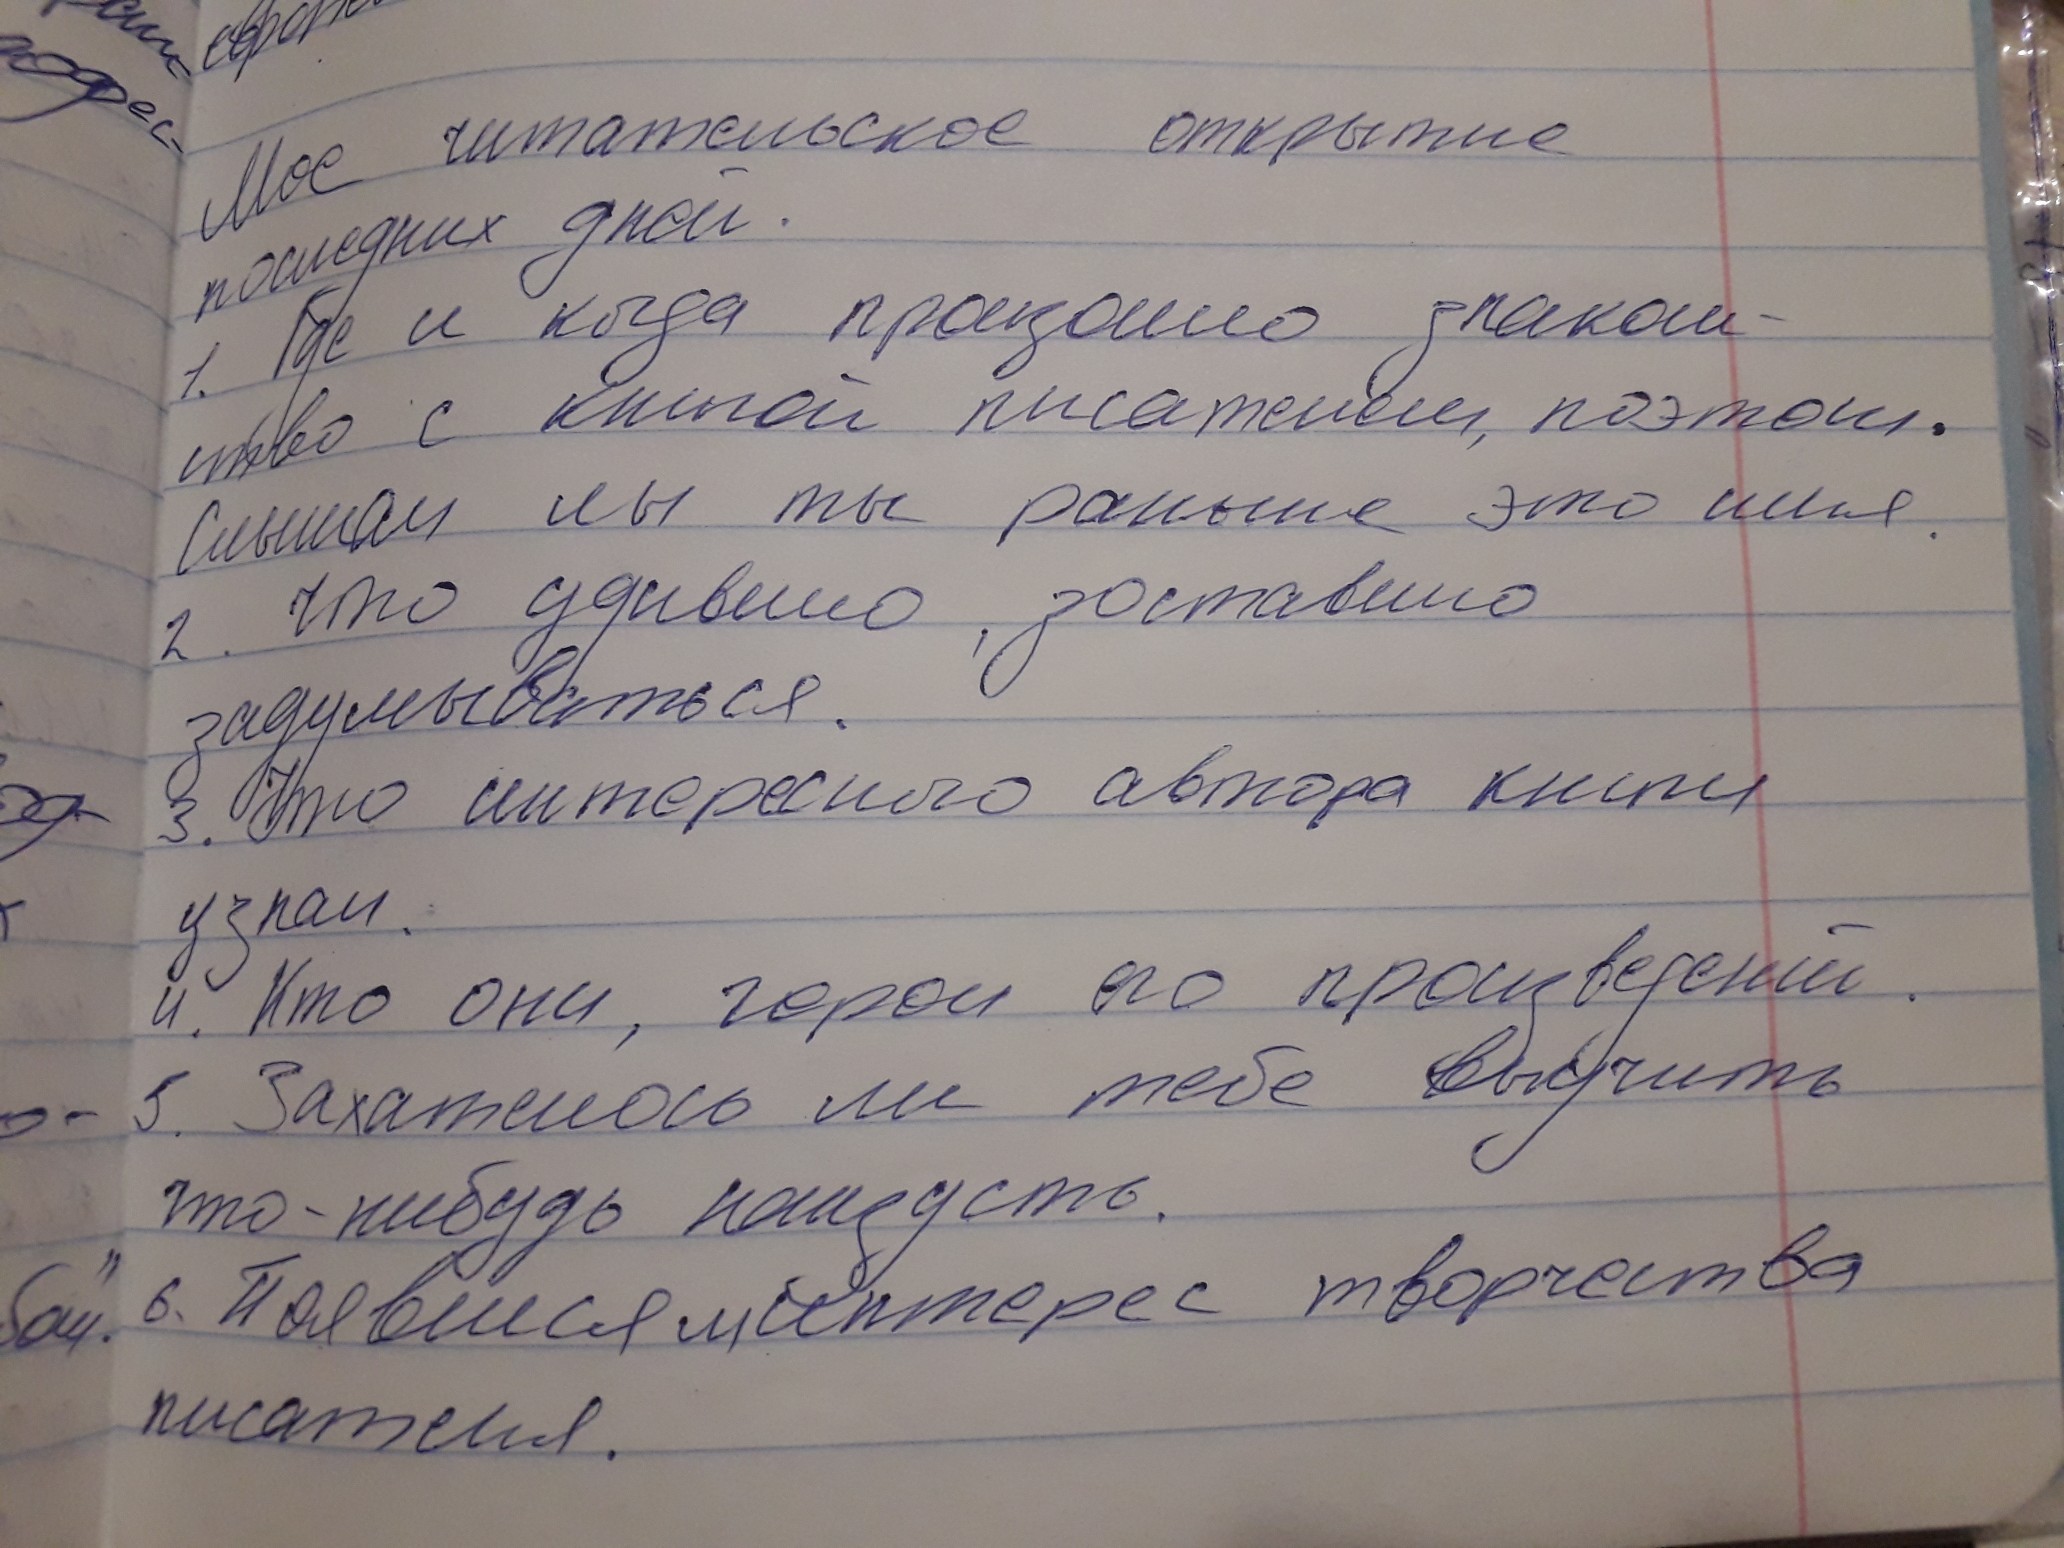 Мое читательское открытие
последних дней.
1. Где и когда произошло знаком-
ство с книгой писателем, поэтом.
Слышал лы ты раньше это имя.
2. Что удивило, зоставило
задумываться.
3. Что интересного автора книги
узнал.
4. Кто они, герои его произведений.
5. Захателось ли тебе выучить
что-нибудь наизусть.
6. Появился ли интерес творчества
писателя.